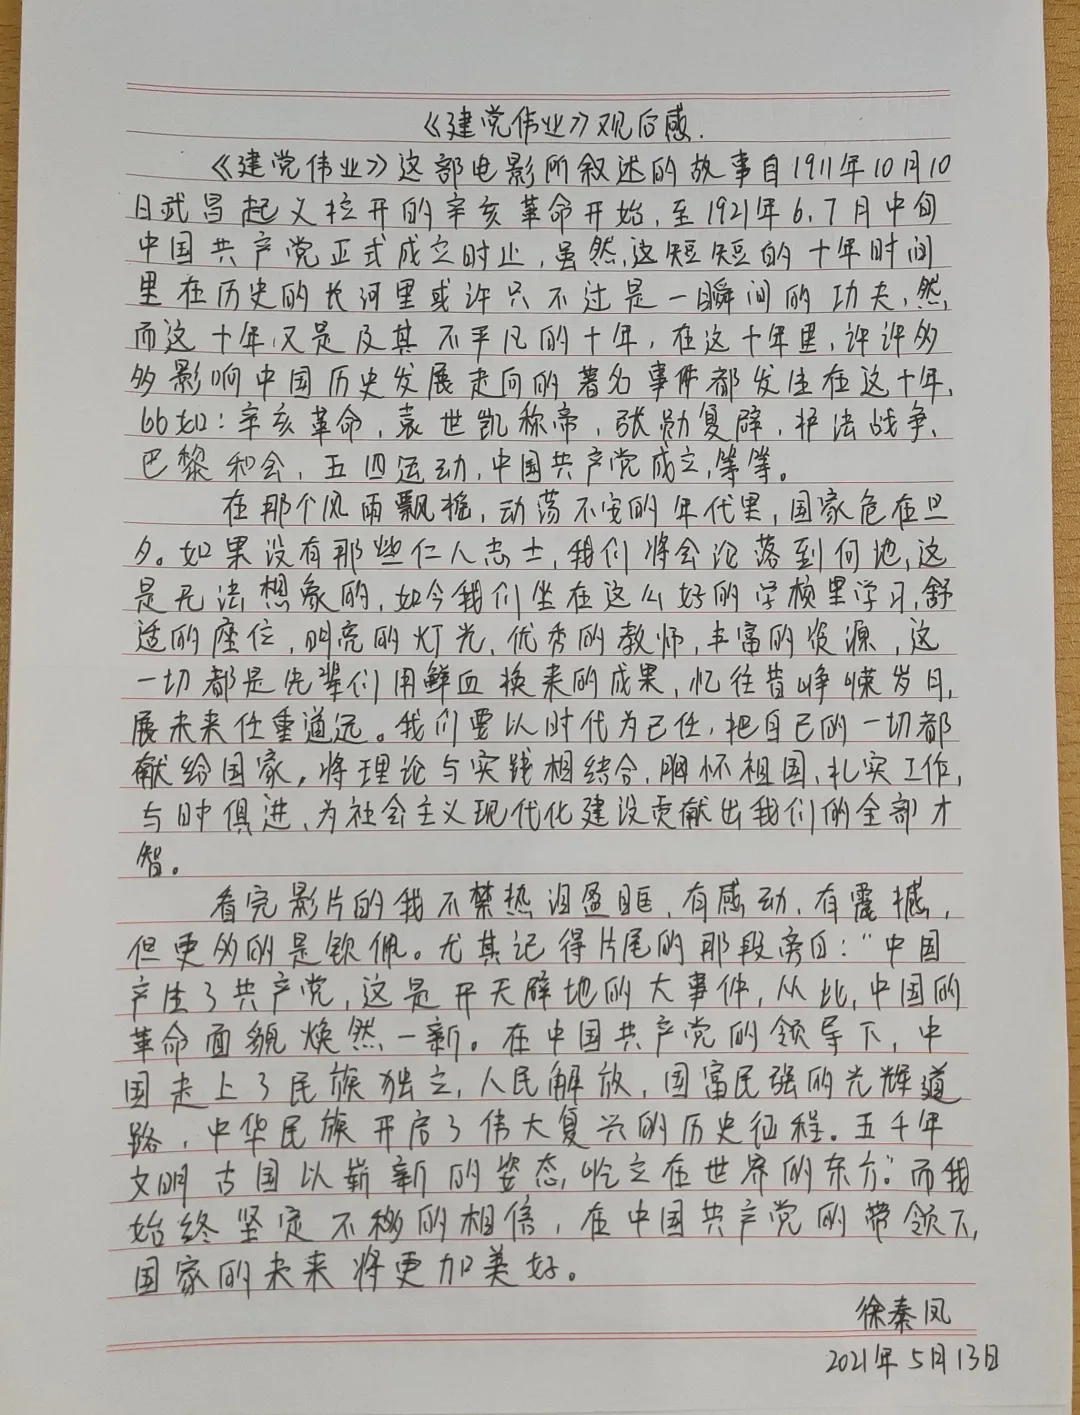 《建党伟业》观后感.
《建党伟业》这部电影所叙述的故事自1911年10月10
日武昌起义拉开的辛亥革命开始,至1921年6、7月中旬
中国共产党正式成立时止,虽然,这短短的十年时间
里在历史的长河里或许只不过是一瞬间的功夫,然
而这十年,又是及其不平凡的十年,在这十年里,许许多
多影响中国历史发展走向的著名事件都发生在这十年,
比如:辛亥革命,袁世凯称帝,张勋复辟,护法战争、
巴黎和会,五四运动,中国共产党成立,等等。
在那个风雨飘摇,动荡不安的年代里,国家危在旦
夕。如果没有那些仁人志士,我们将会沦落到何地,这
是无法想象的,如今我们坐在这么好的学校里学习,舒
适的座位,明亮的灯光,优秀的教师,丰富的资源,这
一切都是先辈们用鲜血换来的成果,忆往昔峥嵘岁月,
展未来任重道远。我们要以时代为己任,把自己的一切都
献给国家,将理论与实践相结合,胸怀祖国,扎实工作,
与时俱进,为社会主义现代化建设贡献出我们的全部才
智。
看完影片的我不禁热泪盈眶,有感动,有震撼,
但更多的是钦佩。尤其记得片尾的那段旁白:“中国
产生了共产党,这是开天辟地的大事件,从此,中国的
革命面貌焕然一新。在中国共产党的领导下,中
国走上了民族独立,人民解放,国富民强的光辉道
路,中华民族开启了伟大复兴的历史征程。五千年
文明古国以崭新的姿态,屹立在世界的东方。”而我
始终坚定不移的相信,在中国共产党的带领下,
国家的未来将更加美好。
徐秦凤
2021年5月13日